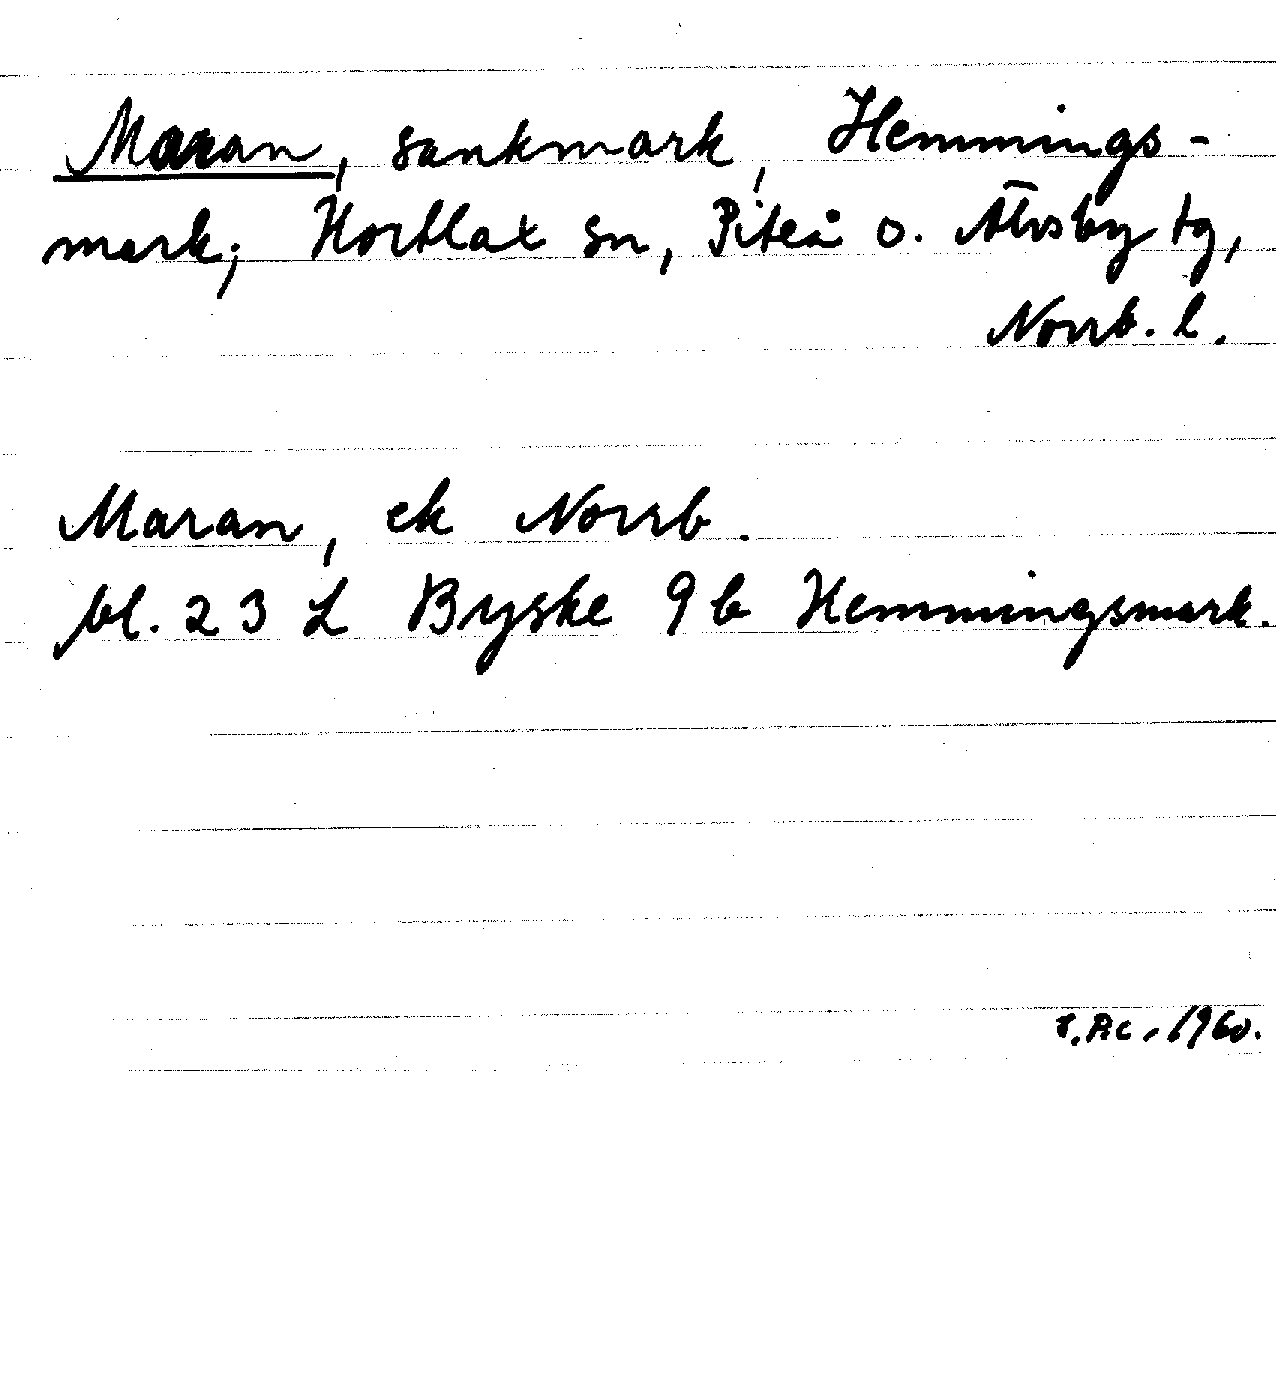 Maran, sankmark, Hemmings-
mark; Hortlax sn, Piteå o. Älvsby tg,
Norrb. l.
Maran, ek Norrb.
bl. 23 L Byske 9 b Hemmingsmark.
1960.